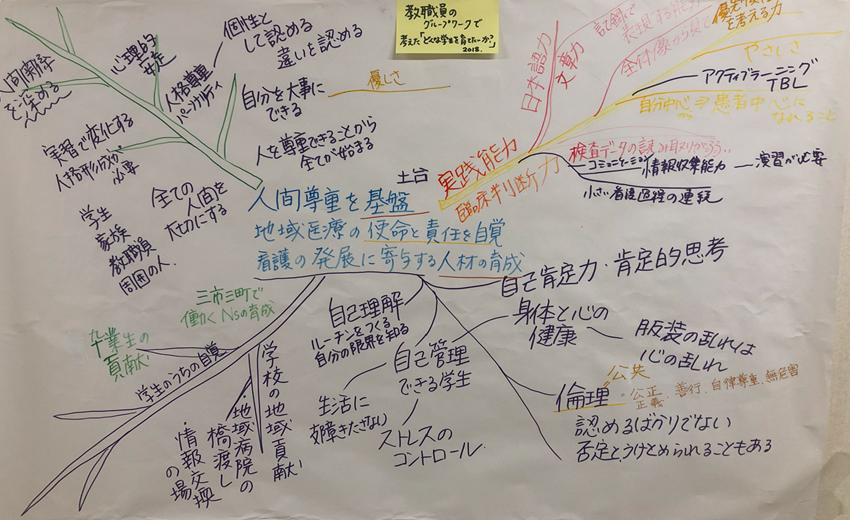 教職員の
グループワークで
考えた「どんな学生を育てたいか?」
2018.
人間関係
心理的
安定
人格尊重
パーソナリティ
個性と
して認める
違いを認める
自分を大事に
できる
優しさ
人を尊重できることから
全てが始まる
実習で変化する
人格形成が
必要
学生
家族
教職員
周囲の人.
全ての
人間を
大切にする
土台
人間尊重を基盤
地域医療の使命と責任を自覚
看護の発展に寄与する人材の育成
実践能力
臨床判断力
日本語力
文章力
記録で
表現する
を考える力
やさしさ
アクティブラーニング
TBL
自分中心
患者中心に
なれること
検査データの読み取り
コミュニケーション
情報収集能力
演習が必要
小さい看護過程の連続
三市三町で
働くNsの育成
卒業生の
貢献
学生のうちの自覚
学校の地域貢献
・地域病院の
橋渡し
・情報交換
の場
自己理解
ルーチンをつくる
自分の限界を知る
自己管理
できる学生
生活に
支障きたさない
ストレスの
コントロール
自己肯定力・肯定的思考
身体と心の
健康
服装の乱れは
心の乱れ
倫理
公共
・公正
正義
・善行・自律尊重・無危害
認めるばかりでない
否定とうけとめられることもある